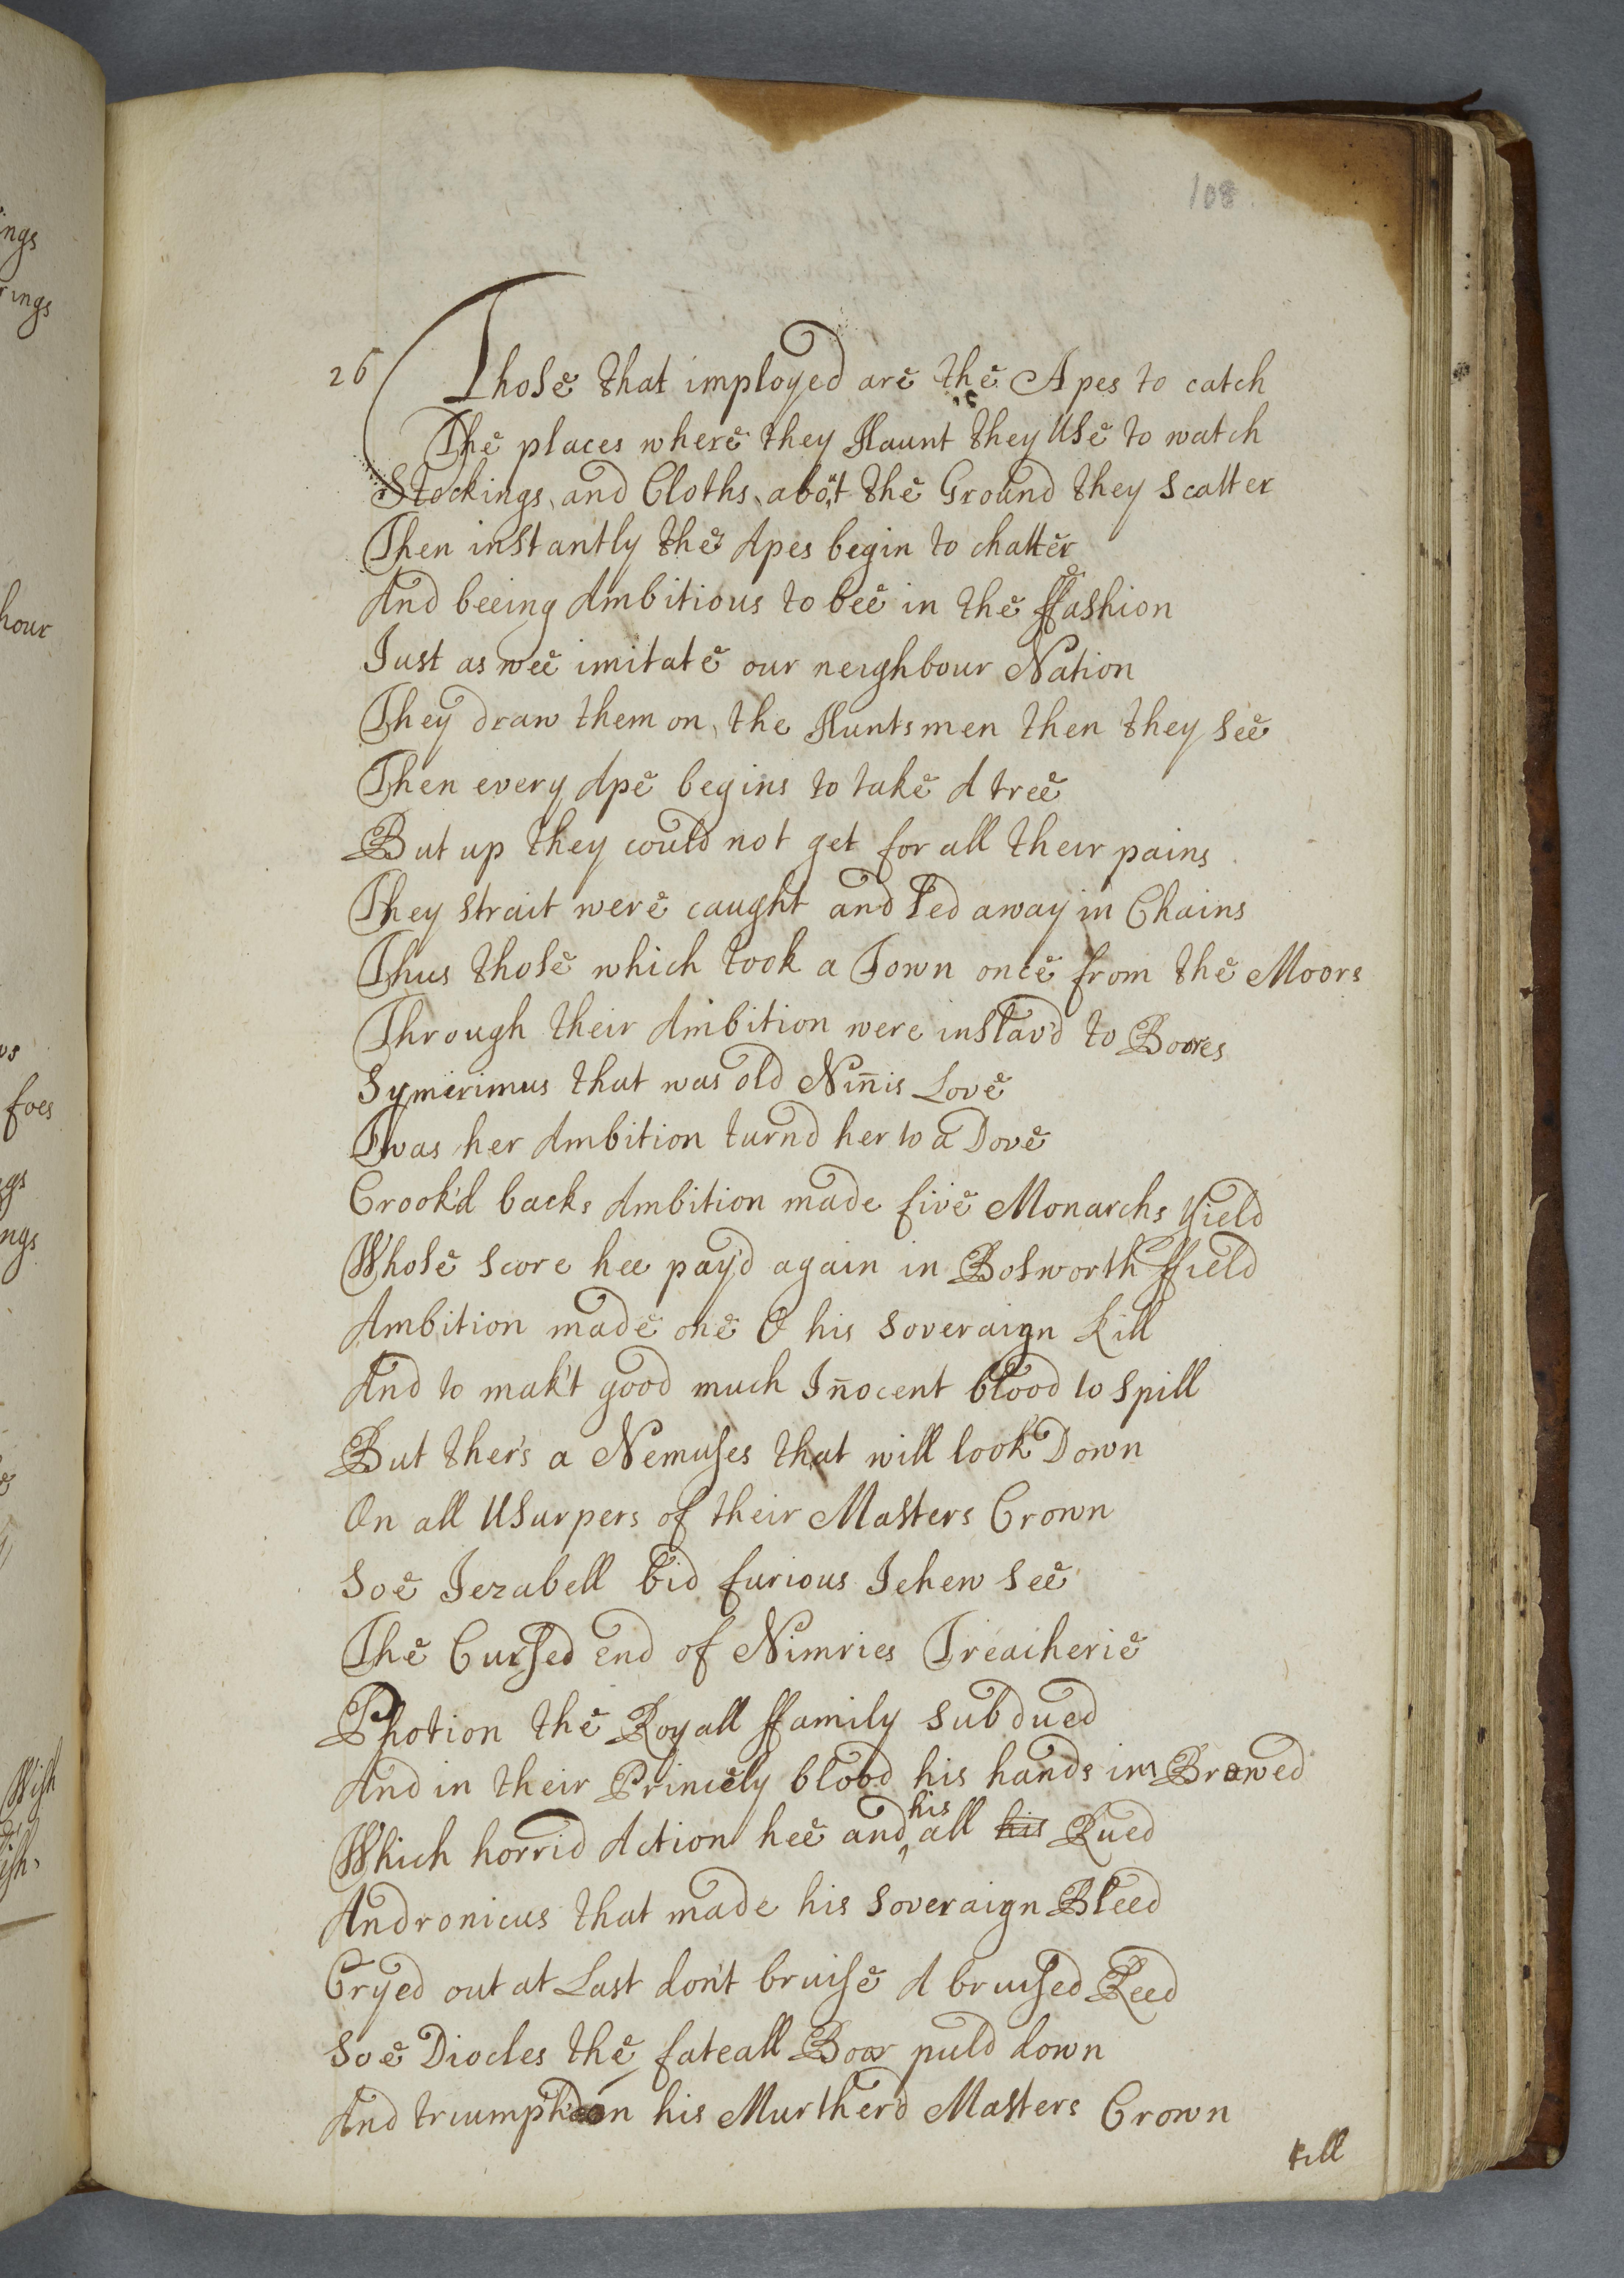 108
26 Those that imployed are the Apes to catch
The places where they Haunt they Use to watch
Stockings, and Cloths, about the Ground they scatter
Then instantly the Apes begin to chatter
And beeing Ambitious to bee in the ffashion
Just as wee imitate our neighbour Nation
They draw them on, the Huntsmen then they see
Then every Ape begins to take A tree
But up they could not get for all their pains
They strait were caught and led away in Chains
Thus those which took a Town once from the Moors
Through their Ambition were inslav'd to Boores
Symerimus that was old Nin̄is Love
Twas her Ambition turnd her to a Dove
Crook'd backs Ambition made five Monarchs yield
Whose score hee pay'd again in Bosworth ffield
Ambition made one O his soveraign kill
And to mak't good much In̄ocent blood to spill
But ther's a Nemuses that will look Down
On all Usurpers of their Masters Crown
Soe Jezabell bid furious Jehew see
The Cursed end of Nimries Treacherie
Photion the Royall ffamily subdued
And in their Princely blood his hands im Brewed
Which horrid Action hee and his all his Rued
Andronicus that made his soveraign Bleed
Cryed out at Last don't bruise A bruised Reed
Soe Diocles the fateall Boar puld down
And triumph'd on his Murther'd Masters Crown
till
ings
rings
hour
foes
ngs
Wish